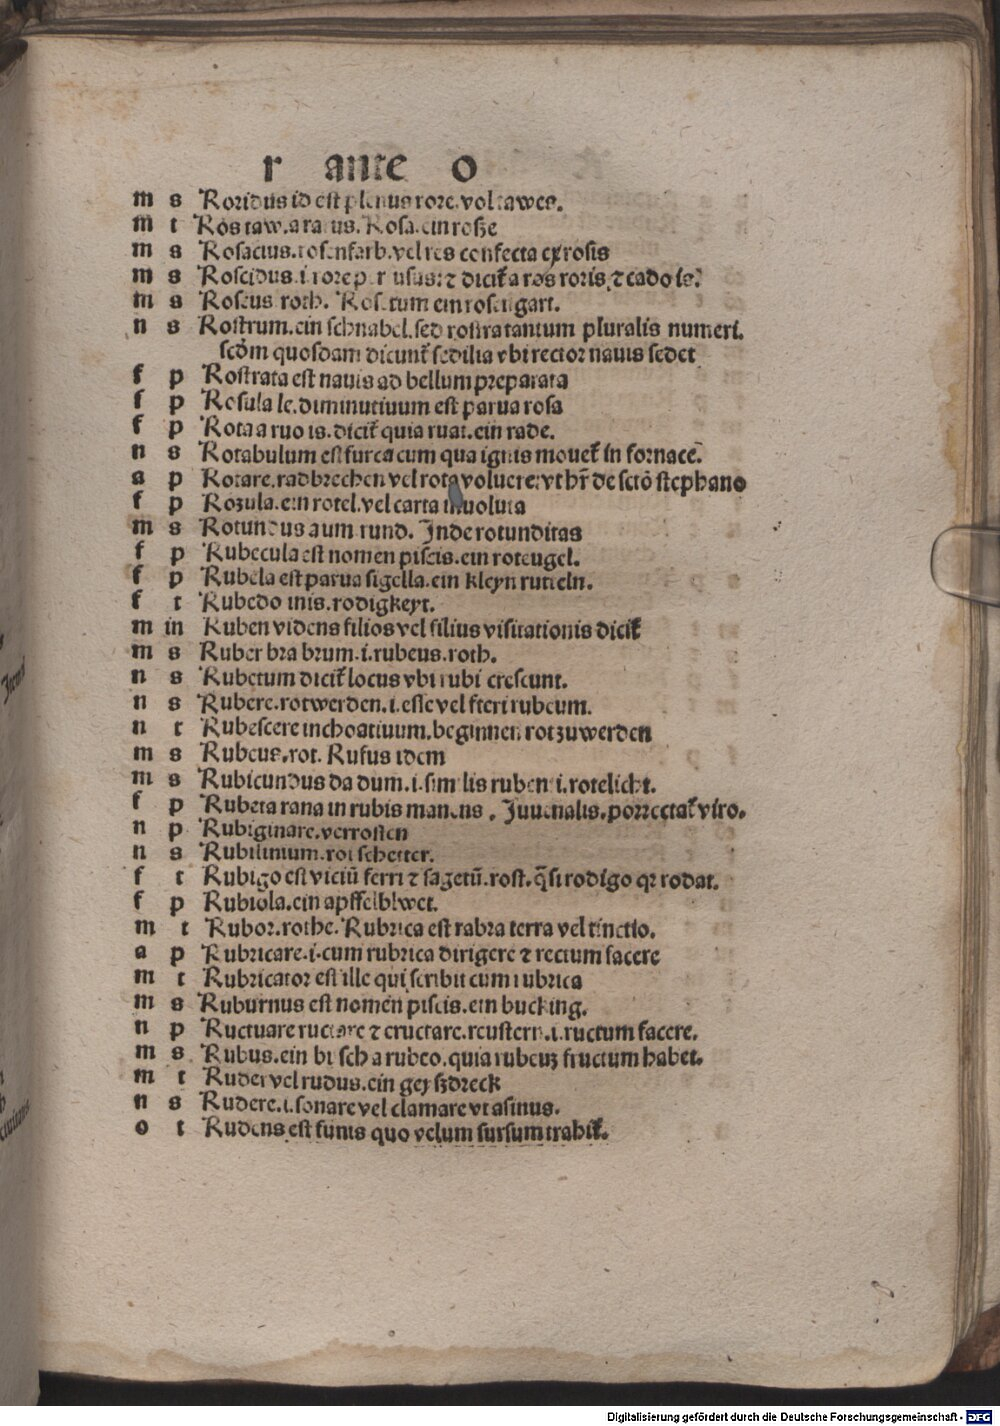 r ante o
m s Roridus id est plenus rore. vol tawes.
m t Ros taw. a ra tus. Rosa. ein roße
m s Rosacius. rosenfarb. vel res confecta ex rosis
m s Roscidus. i rore ꝛ dicit᷑ a ros roris, ꝛ cado is.
m s Roseus roth. Rosetum ein rosengart.
n s Rostrum. ein schnabel. sed rostra tantum pluralis numeri.
scd̄m quosdam dicunt᷑ sedilia vbi rector nauis sedet
f p Rostrata est nauis ad bellum preparata
f p Rosula le. diminutiuum est parua rosa
f p Rota a ruo is. dicit᷑ quia ruat. ein rade.
n s Rotabulum est furca cum qua ignis mouet᷑ in fornace.
a p Rotare. radbrechen vel rota voluere. vt hr̄ de sctō stephano
f p Rozula. ein rotel. vel carta inuoluta
m s Rotundus a um. rund. Inde rotunditas
f p Rubecula est nomen piscis. ein roteugel.
f p Rubela est parua figella. ein kleyn rutteln.
f t Rubedo inis. rodigkeyt.
m in Ruben videns filios vel filius visitationis dicit᷑
m s Ruber bra brum. i. rubeus. roth.
n s Rubetum dicit᷑ locus vbi rubi crescunt.
n s Rubere. rotwerden. i. esse vel fieri rubeum.
n t Rubescere inchoatiuum. beginnen rot zu werden
m s Rubeus. rot. Rufus idem
m s Rubicundus da dum. i. similis rubenti. rotelicht.
f p Rubeta rana in rubis manens. Juuenalis. porrectat᷑ viro.
n p Rubiginare. verrosten
n s Rubilinium. rot schetter.
f t Rubigo est viciū ferri ꝛ sagetū. rost. q̄si rodigo qꝛ rodat.
f p Rubiola. ein apffelblwet.
m t Rubor. rothe. Rubrica est rabra terra vel tinctio.
a p Rubricare. i. cum rubrica dirigere ꝛ rectum facere
m t Rubricator est ille qui scribit cum rubrica
m s Ruburnus est nomen piscis. ein bucking.
n p Ructuare ructare ꝛ eructare. reustern. i. ructum facere.
m s Rubus. ein busch a rubeo. quia rubeuʒ fructum habet.
m t Ruder vel rudus. ein geyszdreck
n s Rudere. i. sonare vel clamare vt asinus.
o t Rudens est funis quo velum sursum trahit᷑.
Digitalisierung gefördert durch die Deutsche Forschungsgemeinschaft - DFG